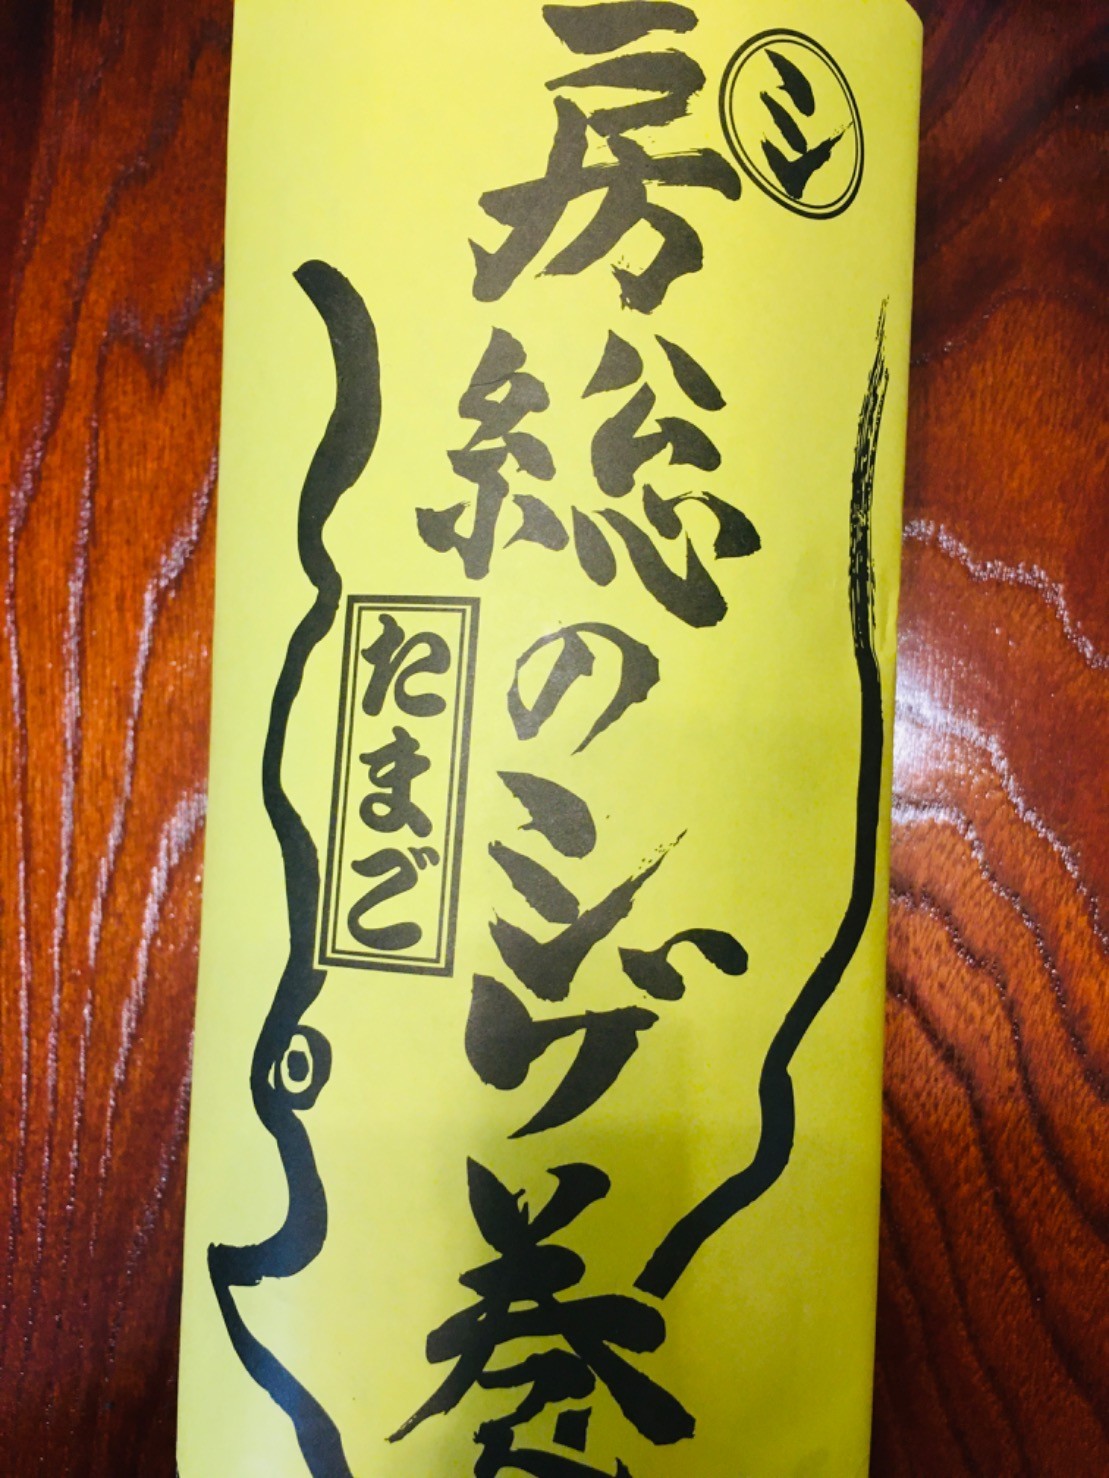 シ
房総のジゲ巻
たまご